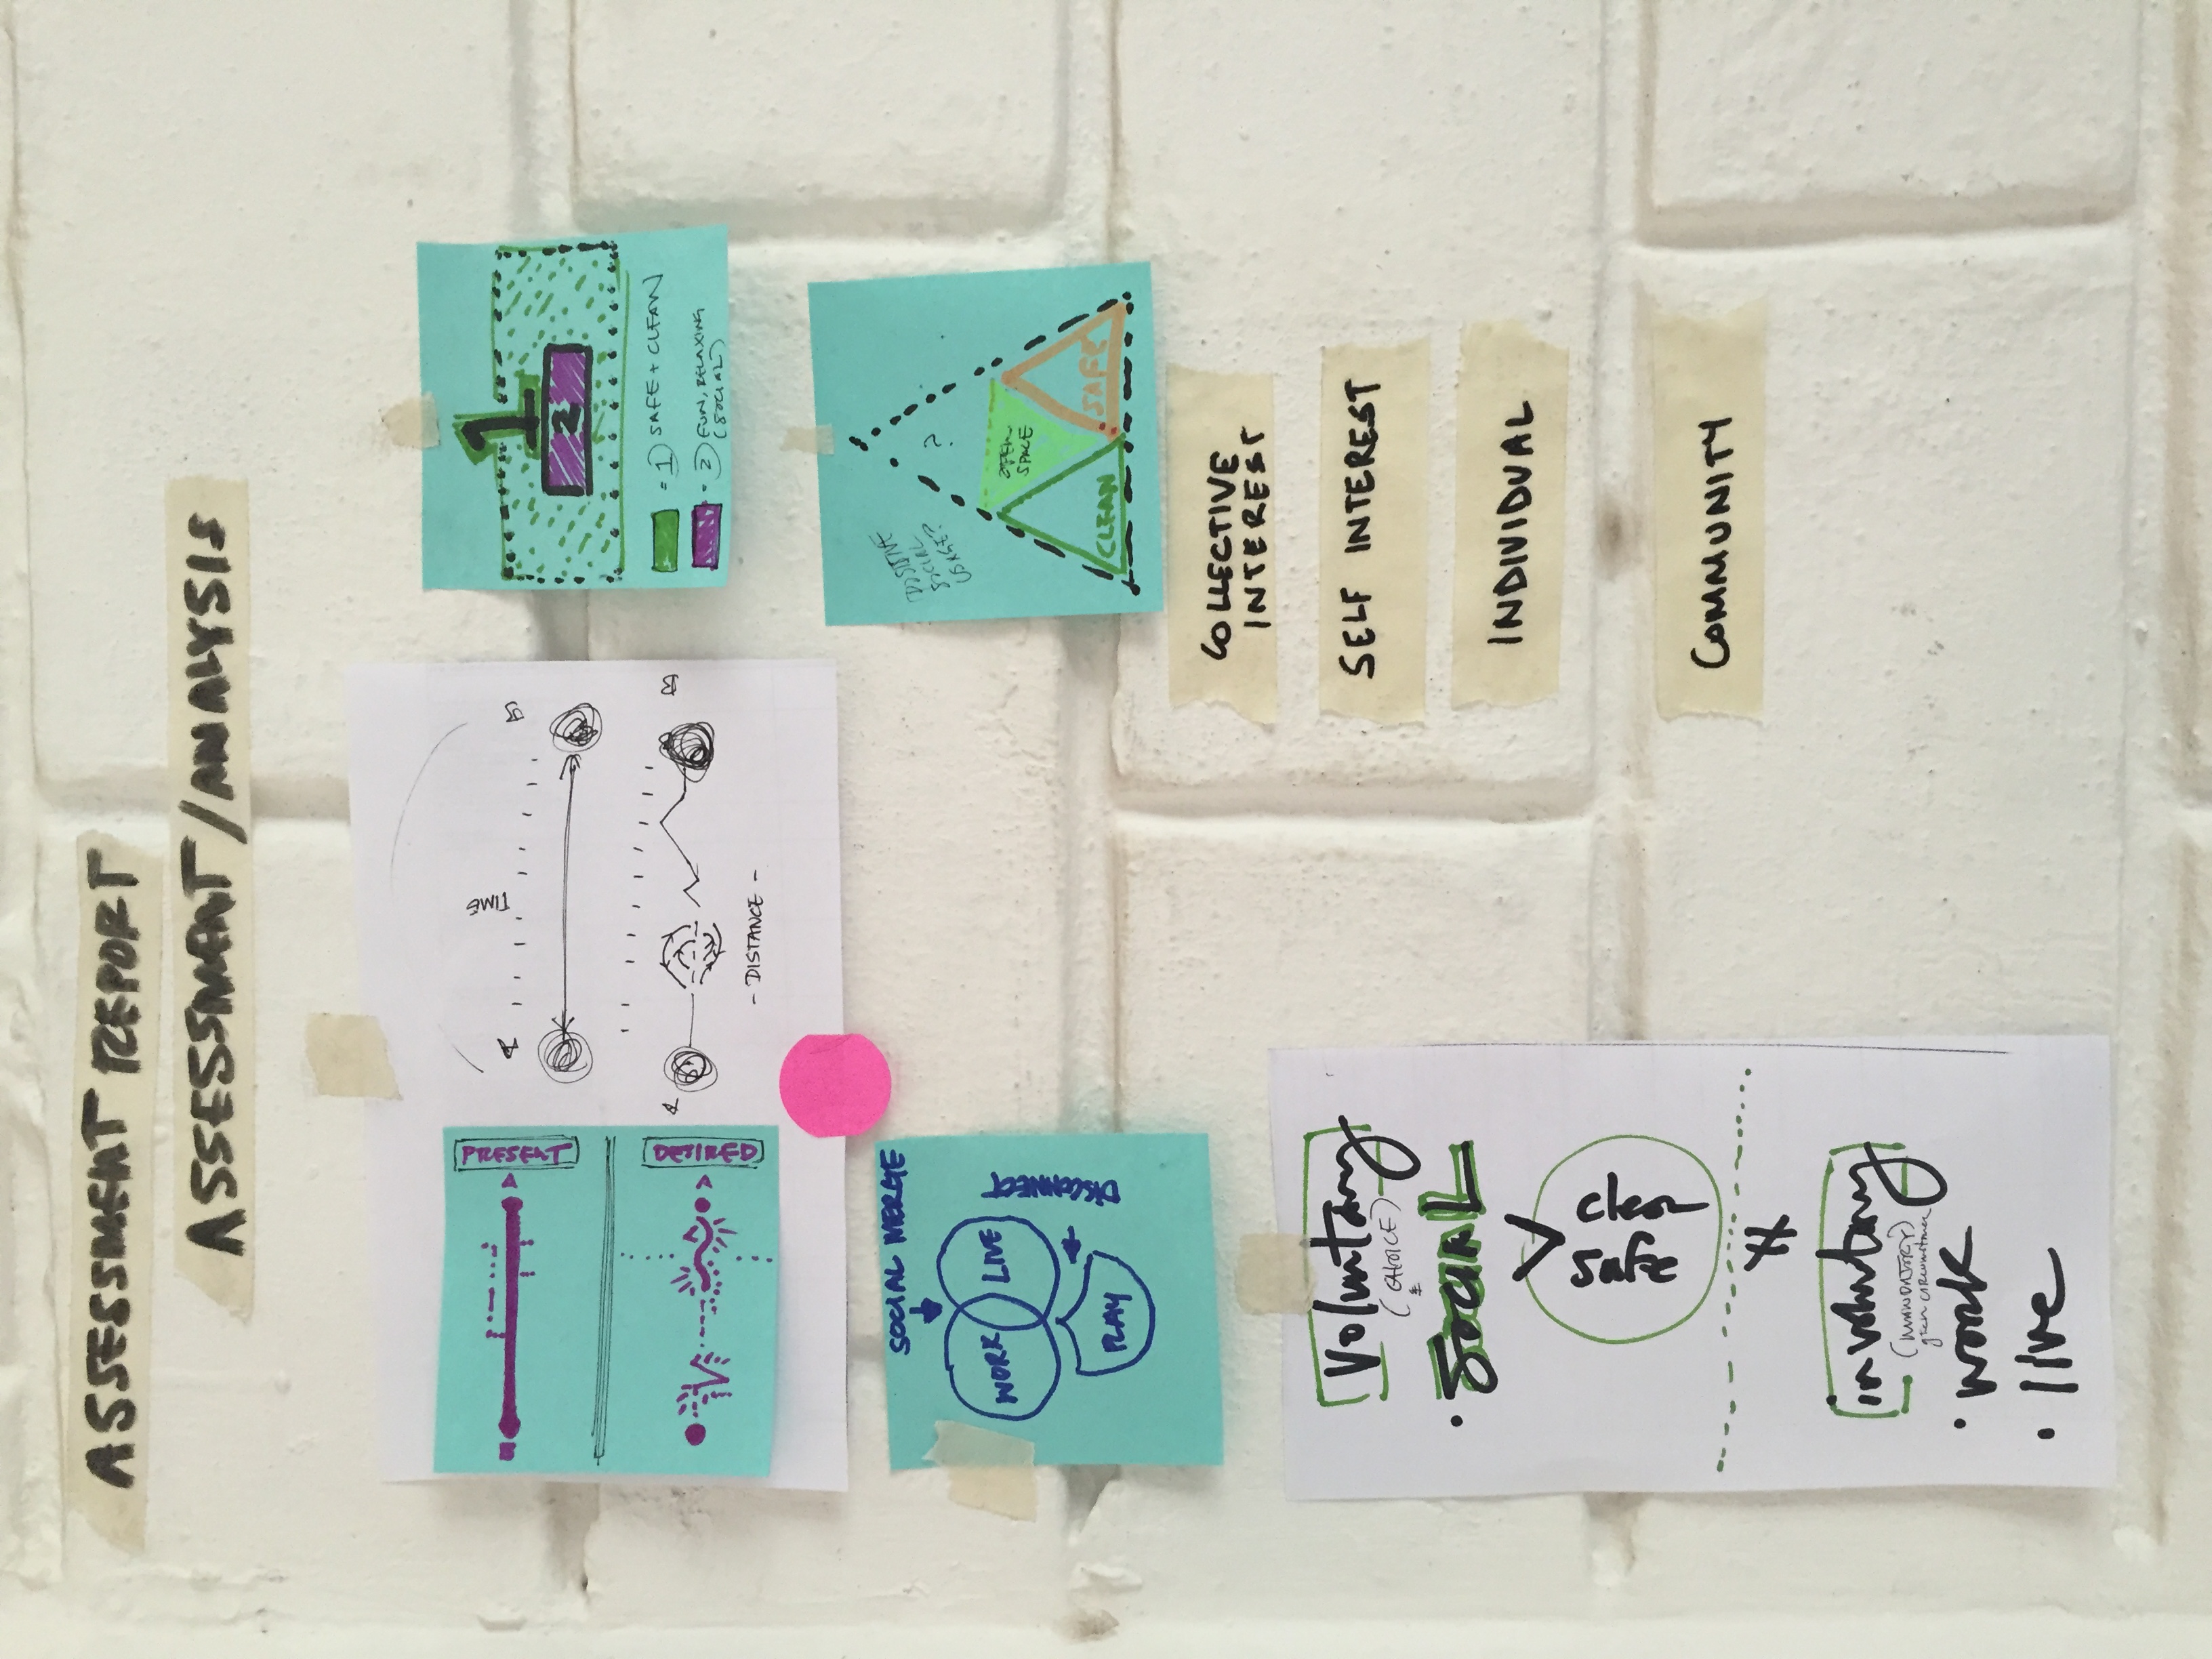 ASSESSMENT REPORT
ASSESSMENT/ANALYSIS
PRESENT
A
B
DETIRED
A
A
TIME
B
A
B
- DISTANCE -
1
2
= 1) SAFE + CLEAN
= 2) FUN, RELAXING
(SOCIAL)
SOCIAL MERGE
WORK
LIVE
DISCONNECT
PLAY
POSITIVE
SOCIAL
USAGE?
?
OPEN
SPACE
CLEAN
SAFE
COLLECTIVE
INTEREST
SELF INTEREST
INDIVIDUAL
COMMUNITY
Voluntary
(CHOICE)
• SOCIAL
>
clean
safe
≠
involuntary
(MANDATORY)
given circumstance
• work
• live